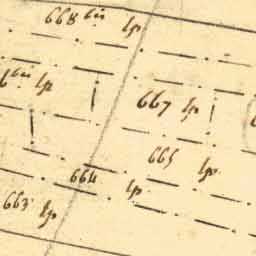 668 bis lp
667 lp
665 lp
664 lp
663 lp